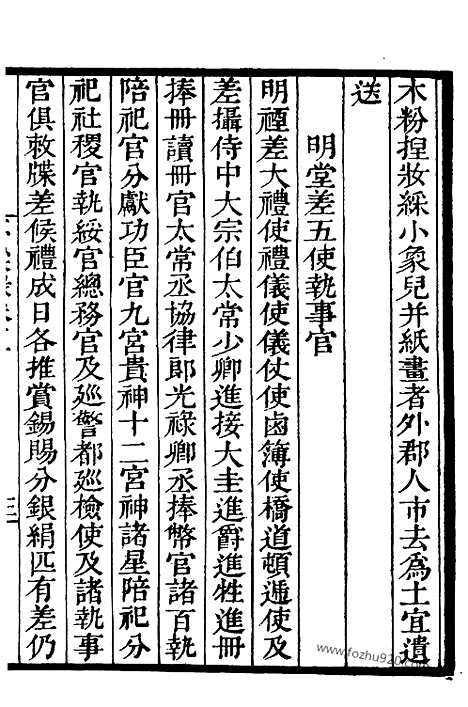 木粉捏妝綵小象兒并紙畫者外郡人市去爲土宜遺
送
明堂差五使執事官
明禋差大禮使禮儀使儀仗使鹵簿使橋道頓遞使及
差攝侍中大宗伯太常少卿進接大圭進爵進牲進冊
捧冊讀冊官太常丞協律郎光祿卿丞捧幣官諸百執
陪祀官分獻功臣官九宮貴神十二宮神諸星陪祀分
祀社稷官執綏官總務官及廵警都廵檢使及諸執事
官俱敕牒差候禮成日各推賞錫賜分銀絹匹有差仍
三
www.fozhu920.com